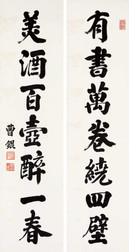 有書萬卷繞四壁
美酒百壺醉一春
曹鋘